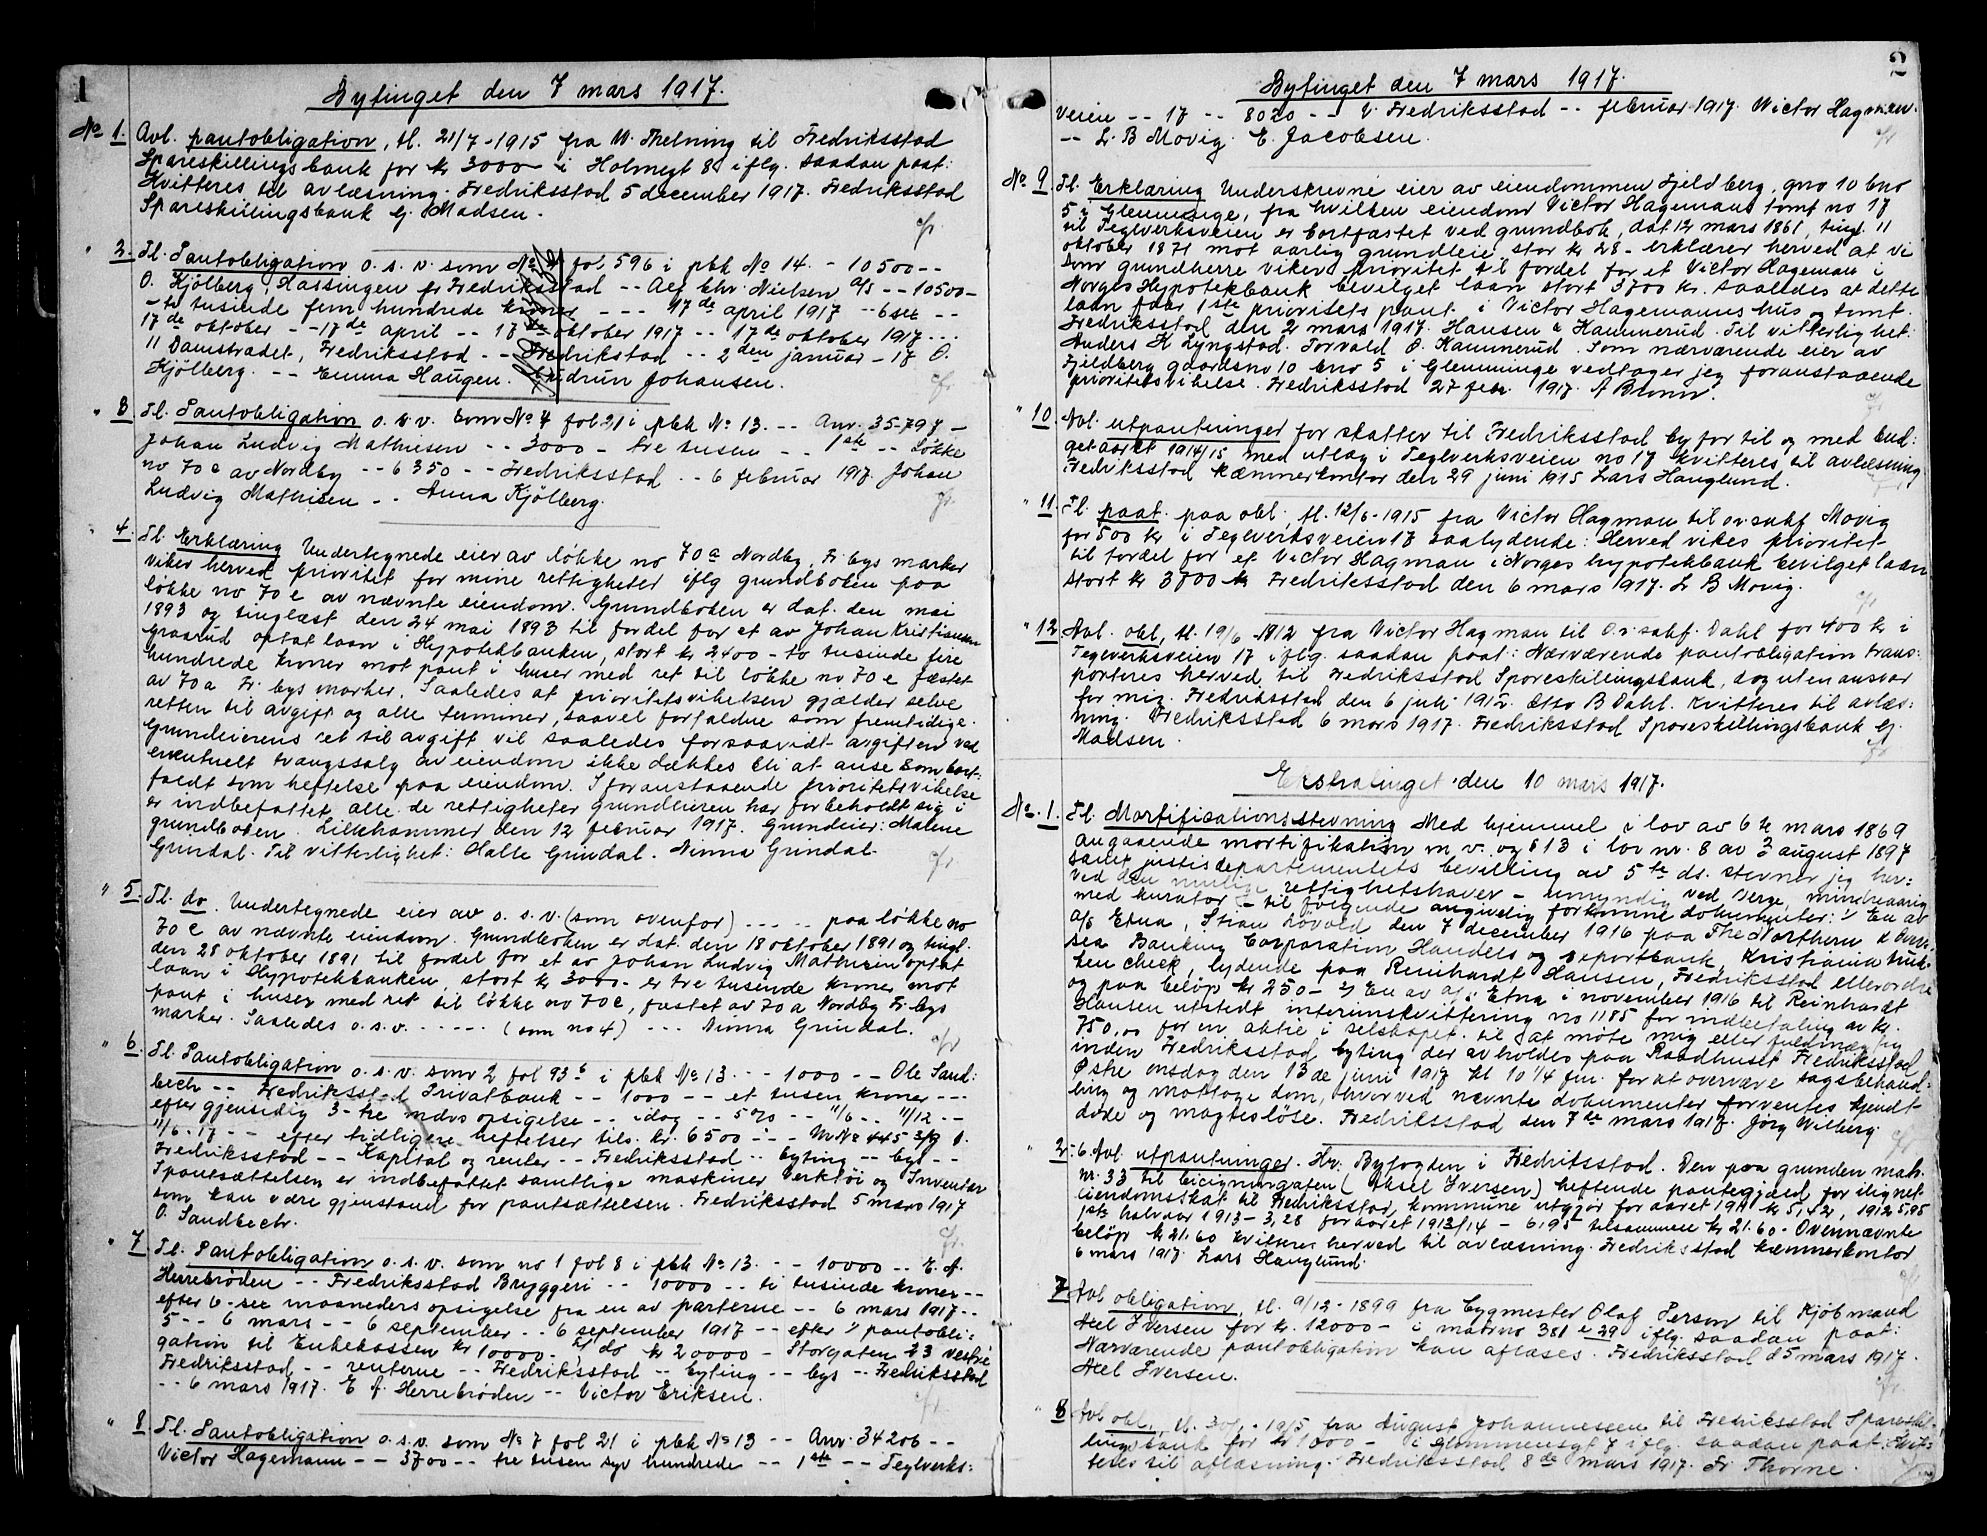 1
Bytinget den 7 mars 1917.
No 1. Avl. pantobligation, tl. 21/7-1915 fra W. Thelning til Fredriksstad
Spareskillingsbank for kr 3000 i Holmegt 8 iflg. saadan paat:
Kvitteres til avlæsning. Fredriksstad 5 december 1917. Fredriksstad
Spareskillingsbank Hj. Madsen.
" 2. Tl. Pantobligation o. s. v. som No fol. 596 i pbk No 14. - 10500 --
O. Kjölberg Hassingen pr Fredriksstad -- Alf Chr. Nielsen A/S -- 10500 -
- ti tusinde fem hundrede kroner --- 17de april 1917 -- 6 sex --
17de oktober -- 17de april -- 17de oktober 1917 -- 17de oktober 1917 ...
11 Damstrædet, Fredriksstad -- Fredrikstad -- 2den januar - 17 O.
Kjölberg. -- Emma Haugen. Gudrun Johansen.
" 3. Tl. Pantobligation o. s. v. som No 4 fol 21 i pbk No 13. -- Anv. 35797 -
Johan Ludvig Mathiesen -- 3000 - tre tusen -- 1ste -- Løkke
no 70e av Nordby -- 6350 -- Fredriksstad -- 6 februar 1917. Johan
Ludvig Mathisen -- Anna Kjölberg.
" 4. Tl. Erklæring Undertegnede eier av løkke no 70a Nordby, Fr. bys marker
viker herved prioritet for mine rettigheter iflg grundboken paa
løkke no 70e av nævnte eiendom. Grundboken er dat. den mai
1893 og tinglæst den 24 mai 1893 til fordel for et av Johan Kristiansen
Graarud optat laan i Hypotekbanken, stort kr 2400 - to tusinde fire
hundrede kroner mot pant i huser med ret til løkke no 70e fæstet
av 70a Fr. bys marker. Saaledes at prioritetsvikelsen gjælder selve
retten til avgift og alle terminer, saavel forfaldne som fremtidige.
Grundeierens ret til avgift vil saaledes forsaavidt avgiften ved
eventuelt tvangssalg av eiendom ikke dækkes bli at anse som bort-
faldt som heftelse paa eiendom. I foranstaaende prioritetsvikelse
er indbefattet alle de rettigheter grundeieren har forbeholdt sig i
grundboken. Lillehammer den 12 februar 1917. Grundeier: Malene
Grindal. Til vitterlighet: Halle Grindal. Ninna Grindal.
" 5. Tl. do. Undertegnede eier av o. s. v. (som ovenfor) ----- paa løkke no
70e av nævnte eiendom. Grundboken er dat. den 18 oktober 1891 og tingl.
den 28 oktober 1891 til fordel for et av Johan Ludvig Mathisen optat
laan i Hypotekbanken, stort kr 3000 - er tre tusinde kroner mot
pant i huser med ret til løkke no 70e, fæstet av 70a Nordby Fr. bys
marker. Saaledes o. s. v. ----- (som no 4) --- Ninna Grindal.
" 6. Tl. Pantobligation o. s. v. som 2 fol 93b i pbk No 13. --- 1000 -- Ole Sand:
bech -- Fredriksstad Privatbank -- 1000 -- et tusen kroner ---
efter gjensidig 3-tre mdrs opsigelse -- idag -- 5% -- 11/6 -- 11/12 --
11/6-17 -- efter tidligere heftelser tils. kr. 6500 -- - M. No 445
Fredriksstad -- Kapital og renter -- Fredriksstad -- byting -- bys --
I pantsættelsen er indbefattet samtlige maskiner verktøi og Inventar
som kan være gjenstand for pantsættelsen. Fredriksstad 5 mars 1917
O. Sandbech.
" 7. Tl. Pantobligation o. s. v. som no 1 fol 8 i pbk No 13. -- 10000 -- E. A.
Herrebröden -- Fredriksstad Bryggeri -- 10000 -- ti tusinde kroner --
efter 6-sex maaneders opsigelse fra en av parterne -- 6 mars 1917 --
5 -- 6 mars -- 6 september -- 6 september 1917 -- efter 1/ pantobli:
gation til Enkekassen kr 10000 - 2/ do kr 20000 - Storgaten 23 vestre
Fredriksstad -- renterne -- Fredriksstad -- byting -- bys -- Fredriksstad
-- 6 mars 1917. E A. Herrebröden -- Victor Eriksen.
" 8. Tl. Pantobligation o. s. v. som No 7 fol 21 i pbk No 13 -- Anv. 34206 --
Victor Hagemann -- 3700 -- tre tusen syv hundrede -- 1ste -- Teglverks:
2
Bytinget den 7 mars 1917.
veien -- 17 -- 8020 -- i Fredriksstad -- februar 1917. Victor Hagman.
-- L. B Movig. E. Jacobsen.
No 9. Tl. Erklæring Underskrevne eier av eiendommen Fjeldberg, gno 10 bno
5 i Glemminge, fra hvilken eiendom Victor Hagemans tomt no 17
til Teglverksveien er bortfæstet ved grundbok, dat 12 mars 1861, tingl. 11
oktober 1871 mot aarlig grundleie stor kr 28 - erklærer herved at vi
som grundherre viker prioritet til fordel for et Victor Hageman i
Norges Hypotekbank bevilget laan stort 3700 kr. saaledes at dette
laan faar 1ste prioritets pant i Victor Hagemanns hus og tomt.
Fredriksstad den 2 mars 1917. Hansen & Kammerud. Til vitterlighet:
Anders H Lyngstad. Torvald O. Kammerud. Som nærværende eier av
Fjeldberg gaardsno 10 bno 5 i Glemminge vedtager jeg foranstaaende
prioritetsvikelse. Fredriksstad 27 febr. 1917. A Brunn.
" 10. Avl. utpantninger for skatter til Fredriksstad by for til og med bud:
getaaret 1914/15 med utlæg i Teglverksveien no 17 kvitteres til avlæsning
Fredriksstad kæmnerkontor den 29 juni 1915 Lars Hauglund.
" 11. Tl. paat. paa obl. tl. 12/6-1915 fra Victor Hagman til ov.sakf. Movig
for 500 kr i Teglverksveien 17 saalydende: Herved vikes prioritet
til fordel for et Victor Hagman i Norges hypotekbank bevilget laan
stort kr 3700 kr Fredriksstad den 6 mars 1917. L B Movig.
" 12. Avl. obl., tl. 19/6-1912 fra Victor Hagman til O.r.sakf. Dahl for 400 kr i
Teglverksveien 17 iflg. saadan paat: Nærværende pantobligation trans:
porteres herved til Fredriksstad Spareskillingsbank, dog uten ansvar
for mig. Fredriksstad den 6 juli 1912. Otto B Dahl. Kvitteres til avlæs:
ning. Fredriksstad 6 mars 1917. Fredriksstad Spareskillingsbank Hj.
Madsen.
Ekstratinget den 10 mars 1917.
No 1. Tl. Mortifikationsstevning Med hjemmel i lov av 6te mars 1869
angaaende mortifikation m. v. og § 13 i lov nr. 8 av 3 august 1897
samt justisdepartementets bevilling av 5te ds. stevner jeg her:
ved den mulige rettighetshaver - umyndig ved verge, mindreaarig
med kurator - til følgende angivelig forkomne dokumenter: 1/ En av
A/S Etna, Stian Løvold den 7 december 1916 paa The Northern & Over:
sea Banking Corporation Handels og Reportbank, Kristiania truk:
ken check, lydende paa Reinhardt Hansen, Fredriksstad eller ordre
og paa beløp kr 250 - 2/ En av A/S Etna i november 1916 til Reinhardt
Hansen utstedt interimskvittering no 1185 for indbetaling av kr.
750,00 for en aktie i selskapet. til at møte mig eller fuldmægtig
inden Fredriksstad byting der avholdes paa Raadhuset Fredriksstad
Østre onsdag den 13de juni 1917 kl 10 1/4 fm. for at overvære sagsbehand:
ling og mottage dom, hvorved nævnte dokumenter forventes kjendt
døde og magtesløse. Fredriksstad den 7de mars 1917. Jørg Wilberg.
" 2: 6. Avl. utpantninger. Hr. Byfogden i Fredriksstad. Den paa grunden matr.
nr. 33 til Cicignongaten (Aksel Iversen) heftende pantegjæld for ilignet
eiendomsskat til Fredriksstad kommune utgjør for aaret 1911 kr 5,42, 1912 5,95
1ste halvaar 1913 - 3,28 for aaret 1913/14 - 6,95 tilsammen kr 21.60. Ovennævnte
beløp kr 21.60 kvitteres herved til avlæsning. Fredriksstad kæmnerkontor
6 mars 1917. Lars Hauglund.
7 Avl obligation, tl. 9/12-1899 fra bygmester Olaf Person til Kjöbmand
Axel Iversen for kr. 12000 - i matr no 381 e 29 iflg. saadan paat:
Nærværende pantobligation kan aflæses. Fredriksstad d 5 mars 1917.
Axel Iversen.
" 8 Avl obl., tl. 30/ - 1915 fra August Johannessen til Fredriksstad Spareskil:
lingsbank for kr 1000 - i Glommensgt 7 iflg. saadan paat: Kvit:
teres til aflæsning. Fredriksstad 8de mars 1917. Fr Thorne.